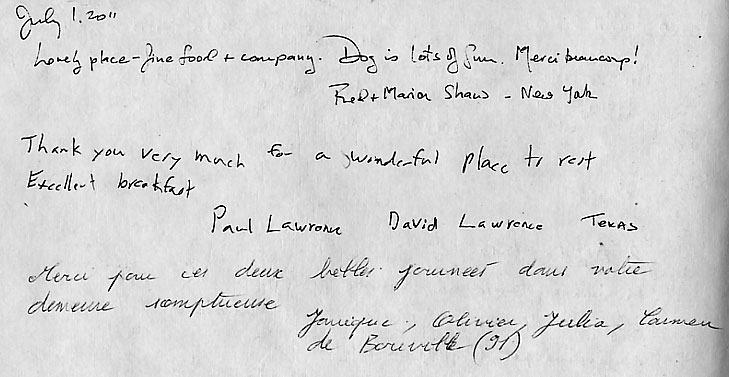 July 1. 2011
Lovely place - fine food + company. Dog is lots of fun. Merci beaucoup!
Fred + Marion Shaw - New York
Thank you very much for a wonderful place to rest
Excellent breakfast
Paul Lawrence David Lawrence Texas
Merci pour ces deux belles journees dans votre
demeure somptueuse
Olivier, Julia, Carmen
de (91)